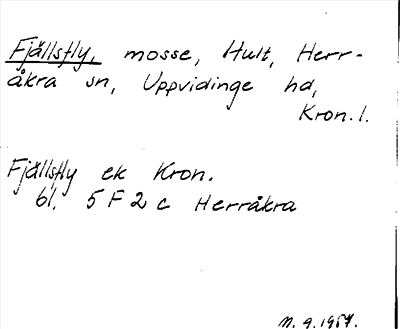 Fjällsfly, mosse, Hult, Herr-
åkra sn, Uppvidinge hd,
Kron. l.
Fjällsfly ek Kron.
bl. 5 F 2 c Herråkra
M. 9. 1957.